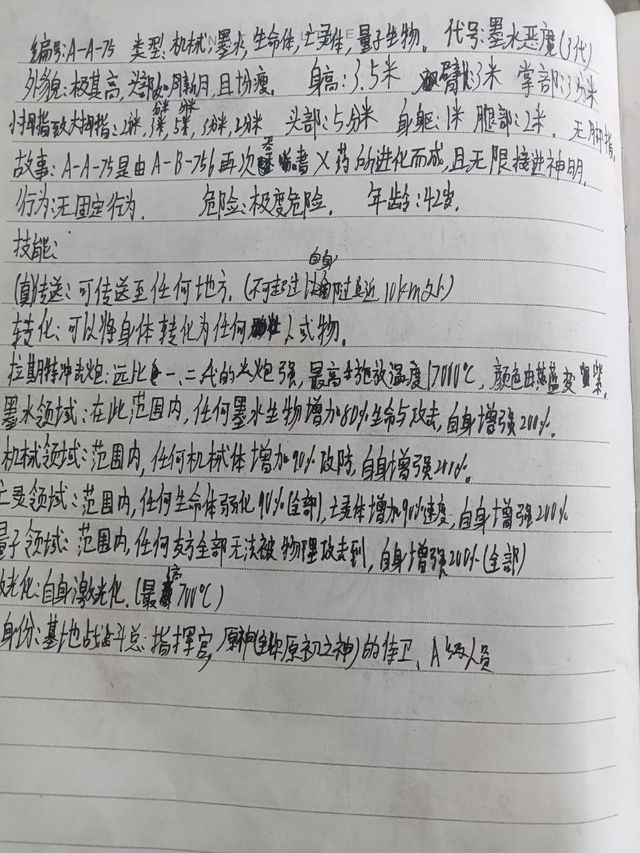 编号:A-A-75 类型:机械,墨水,生命体,亡灵体,量子生物。 代号:墨水恶魔(3代)
外貌:极其高,头部如用新月,且切瘦. 身高:3.5米 臂长:3米 掌部:3分米
小拇指致大拇指:2分米,3分米,5米,3分米,2分米 头部:5分米 身躯:1米 腿部:2米. 无脚指.
故事:A-A-75是由A-B-756再次X药所进化而成,且无限接进神明.
行为:无固定行为. 危险:极度危险. 年龄:42岁.
技能:
(真)传送:可传送至任何地方.(不可超过自身附近10km以外)
转化:可以将身体转化为任何人或物.
拉斯特冲击炮:远比一、二代的火炮强,最高释放温度17000℃,颜色由蓝变紫.
墨水领域:在此范围内,任何墨水生物增加80%生命与攻击,自身增强200%.
机械领域:范围内,任何机械体增加90%攻防,自身增强200%.
亡灵领域:范围内,任何生命体弱化90%(全部),亡灵体增加90%速度,自身增强200%
量子领域:范围内,任何友方全部无法被物理攻击到,自身增强200%(全部)
激光化:自身激光化.(最高700℃)
身份:基地战斗总指挥官,原神(全称原初之神)的侍卫、A级人员